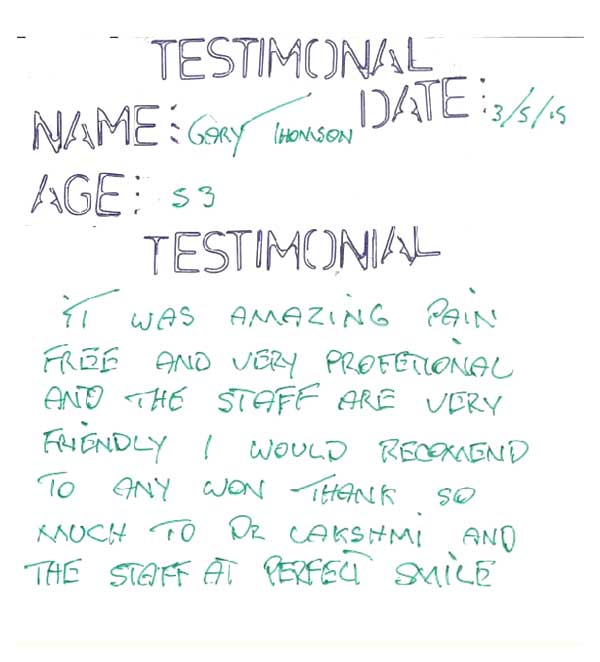 TESTIMONAL
NAME: GARY THOMSON DATE: 3/5/15
AGE: 53
TESTIMONIAL
IT WAS AMAZING PAIN
FREE AND VERY PROFETIONAL
AND THE STAFF ARE VERY
FRIENDLY I WOULD RECOMEND
TO ANY WON THANK SO
MUCH TO DR LAKSHMI AND
THE STAFF AT PERFECT SMILE